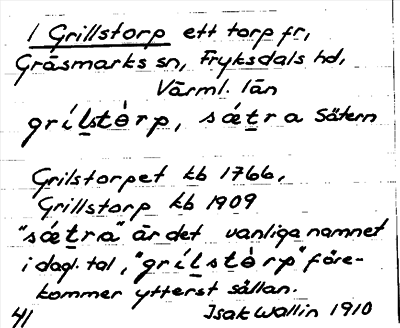 1 Grillstorp ett torp fr,
Gräsmarks sn, Fryksdals hd,
Värml. län
grílstòrp, sǽtra Sätern
Grilstorpet kb 1766,
Grillstorp kb 1909
"sǽtra" är det vanliga namnet
i dagl. tal, "grílstòrp" före-
kommer ytterst sällan.
41 Isak Wallin 1910